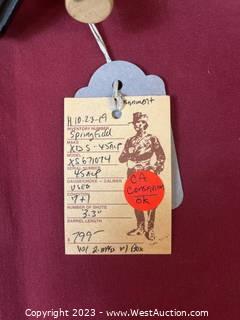 H 10-23-19
INVENTORY NUMBER
Springfield
MAKE
XDS-45ACP
MODEL
XS671074
SERIAL NUMBER
45ACP
GAUGE/CHOKE - CALIBER
USED
7+1
NUMBER OF SHOTS
3.3"
BARREL LENGTH
$ 799-
W/ 2-MAGS W/ Box
CA
Consignment
OK
Copyright 2023 - www.WestAuction.com